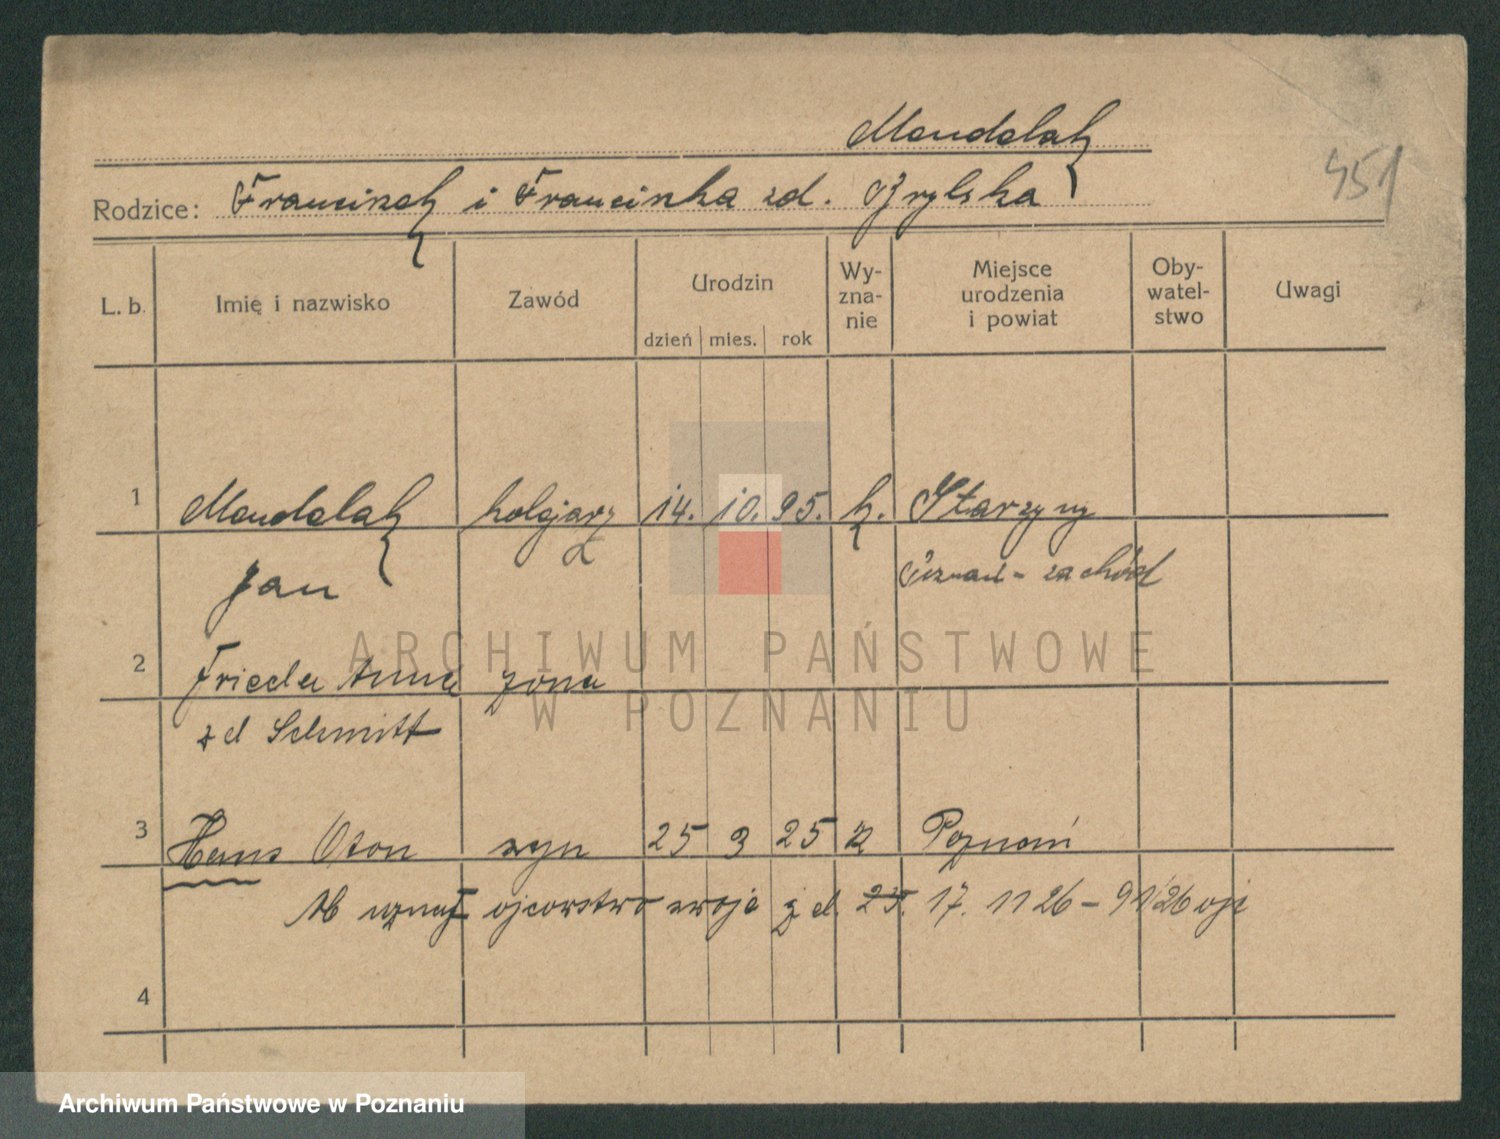 Mendelak
451
Rodzice: Franciszek i Franciszka zd. Brylska
L. b. Imię i nazwisko Zawód Urodzin dzień mies. rok Wy-zna-nie Miejsce urodzenia i powiat Oby-watel-stwo Uwagi
1 Mendelak kolejarz 14. 10. 95. k. Starzyny
Jan Poznań - zachód
2 Frieda Anna żona
zd Schmitt
3 Hans Oton syn 25 3 25 k Poznań
M uznał ojcowstwo swoje z d. 25. 17. 11 26 - 91/26
4
ARCHIWUM PAŃSTWOWE
W POZNANIU
Archiwum Państwowe w Poznaniu